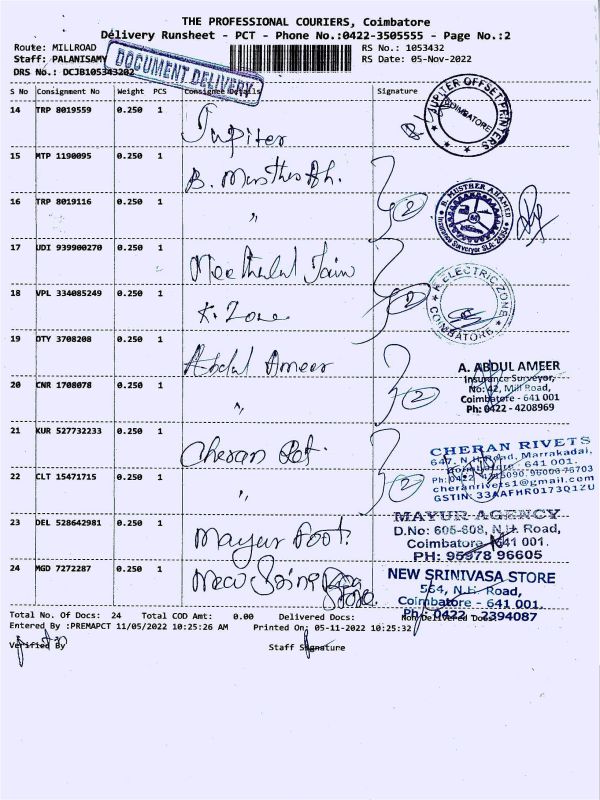 THE PROFESSIONAL COURIERS, Coimbatore
Delivery Runsheet - PCT - Phone No.:0422-3505555 - Page No.:2
Route: MILLROAD RS No.: 1053432
Staff: PALANISAMY RS Date: 05-Nov-2022
DRS No.: DCJB105343202
DOCUMENT DELIVERY
S No Consignment No Weight PCS Consignee Details Signature
14 TRP 8019559 0.250 1 Jupiter
JUPITER OFFSET PRINTERS COIMBATORE
15 MTP 1190095 0.250 1 B. Musther Ah.
16 TRP 8019116 0.250 1 " 2
B. MUSTHER AHAMED
Insurance Surveyor
17 UDI 939900270 0.250 1 Jain
18 VPL 334085249 0.250 1 K. Zone 2
ELECTRIC ZONE
COIMBATORE
19 DTY 3708208 0.250 1 Abdul Ameer
20 CNR 1708078 0.250 1 " 2
A. ABDUL AMEER
Insurance Surveyor,
No: 42, Mill Road,
Coimbatore - 641 001
Ph: 0422 - 4208969
21 KUR 527732233 0.250 1 Cheran
22 CLT 15471715 0.250 1 " 2
CHERAN RIVETS
647, N.H.Road, Marrakadai,
Coimbatore - 641 001.
cheranrivets1@gmail.com
GSTIN: 33AAFHR0173Q1ZU
23 DEL 528642981 0.250 1 Mayur
MAYUR AGENCY
D.No: 605-608, N.H. Road,
Coimbatore - 641 001.
PH: 95978 96605
24 MGD 7272287 0.250 1 New Store.
NEW SRINIVASA STORE
564, N.H. Road,
Coimbatore - 641 001.
Ph: 0422 - 2394087
Total No. Of Docs: 24 Total COD Amt: 0.00 Delivered Docs: Non Delivered Docs:
Entered By :PREMAPCT 11/05/2022 10:25:26 AM Printed On: 05-11-2022 10:25:32
Verified By Staff Signature